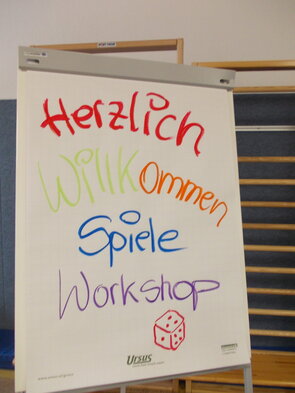 Herzlich
Willkommen
Spiele
Workshop
Ursus